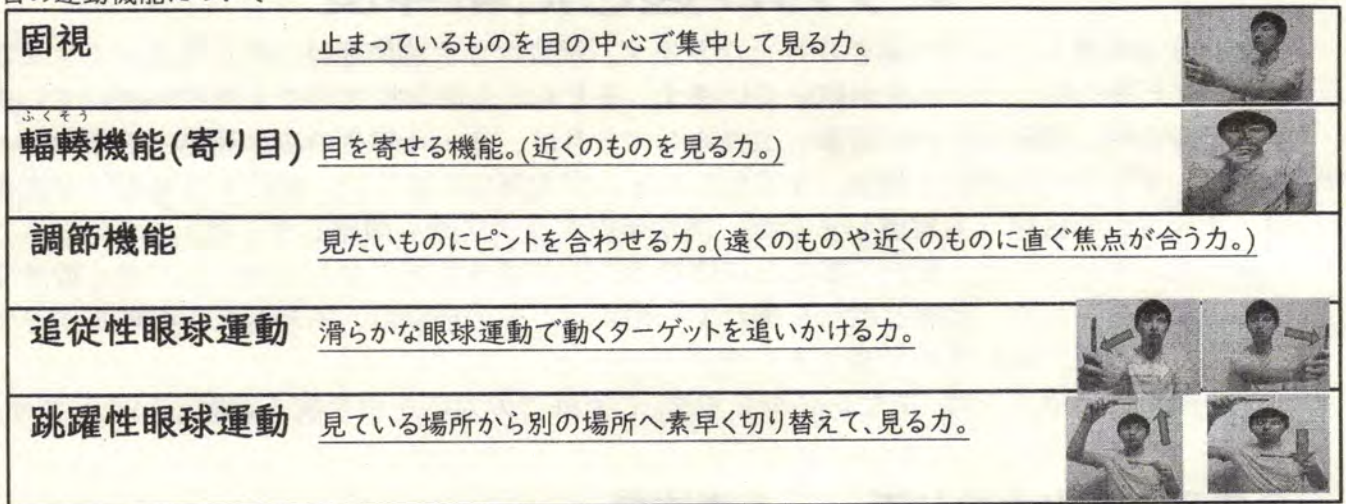 固視
止まっているものを目の中心で集中して見る力。
ふくそう
輻輳機能(寄り目) 目を寄せる機能。(近くのものを見る力。)
調節機能 見たいものにピントを合わせる力。(遠くのものや近くのものに直ぐ焦点が合う力。)
追従性眼球運動 滑らかな眼球運動で動くターゲットを追いかける力。
跳躍性眼球運動 見ている場所から別の場所へ素早く切り替えて、見る力。